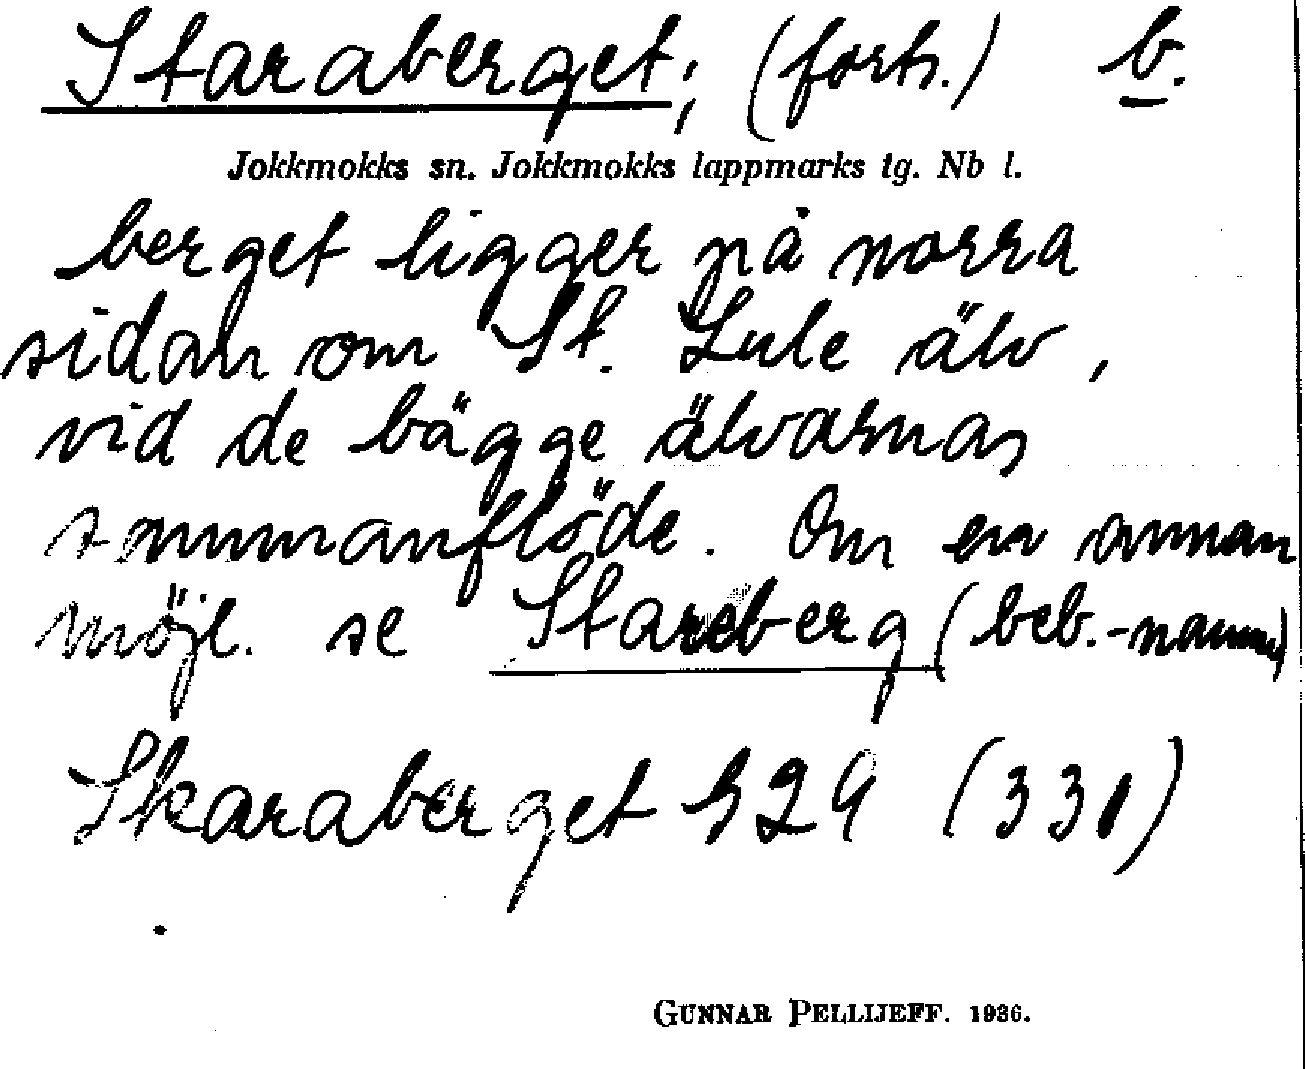 Staraberget; (forts.) b.
Jokkmokks sn. Jokkmokks lappmarks tg. Nb l.
berget ligger på norra
sidan om St. Lule älv,
vid de bägge älvarnas
sammanflöde. Om en annan
möjl. se Stareberg (beb.-namn)
Skaraberget 529 (331)
GUNNAR PELLIJEFF. 1936.